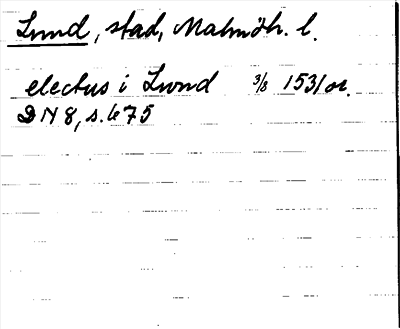 Lund, stad, Malmöh. l.
electus i Lwnd 3/8 1531 or.
DN 8, s. 675